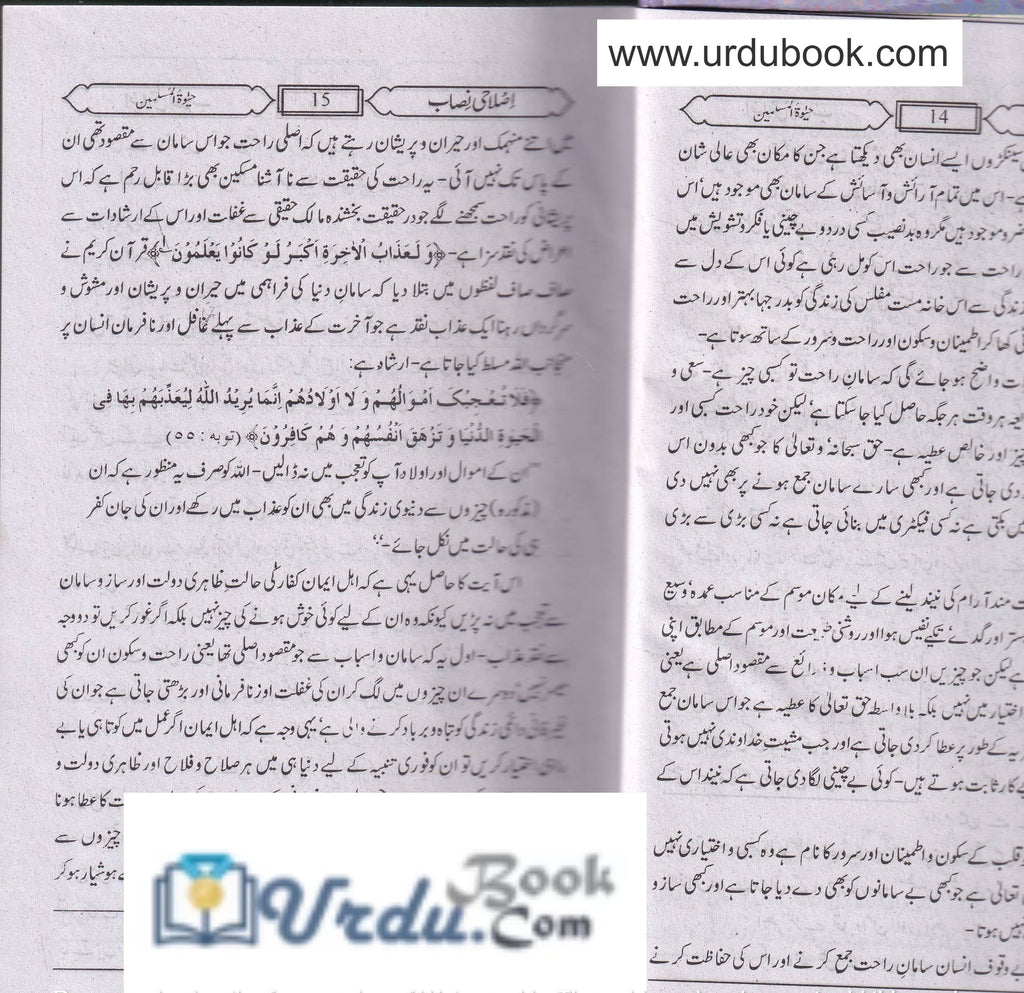 www.urdubook.com
حیٰوۃ المسلمین
14
سینکڑوں ایسے انسان بھی دیکھتا ہے جن کا مکان بھی عالی شان
ہے- اس میں تمام آرائش و آسائش کے سامان بھی موجود ہیں' اس
موجود ہیں مگر وہ بدنصیب کسی درد و بے چینی یا فکر و تشویش میں
راحت سے جو راحت اس کو مل رہی ہے کوئی اس کے دل سے
زندگی سے اس خانہ مست مفلس کی زندگی کو بدرجہا بہتر اور راحت
کھا کر اطمینان و سکون اور راحت و سرور کے ساتھ سوتا ہے-
واضح ہو جائے گی کہ سامان راحت تو کسبی چیز ہے- سعی و
ہر وقت ہر جگہ حاصل کیا جا سکتا ہے' لیکن خود راحت کسبی اور
چیز اور خالص عطیہ ہے- حق سبحانہٗ و تعالیٰ کا جو کبھی بدون اس
دی جاتی ہے اور کبھی سارے سامان جمع ہونے پر بھی نہیں دی
بکتی ہے نہ کسی فیکٹری میں بنائی جاتی ہے نہ کسی بڑی سے بڑی
مند آرام کی نیند لینے کے لیے مکان موسم کے مناسب عمدہ' وسیع
اور گدے' تکیے نفیس ہوا اور روشنی اور موسم کے مطابق اپنی
ہے لیکن جو چیزیں ان سب اسباب و ذرائع سے مقصود اصلی ہے یعنی
اختیار میں نہیں بلکہ بلاواسطہ حق تعالیٰ کا عطیہ ہے جو اس سامان جمع
کے طور پر عطا کر دی جاتی ہے اور جب مشیتِ خداوندی نہیں ہوتی
بے کار ثابت ہوتے ہیں- کوئی بے چینی لگا دی جاتی ہے کہ نیند اس کے
قلب کے سکون و اطمینان اور سرور کا نام ہے وہ کسبی و اختیاری نہیں
تعالیٰ ہے جو کبھی بے سامانوں کو بھی دے دیا جاتا ہے اور کبھی ساز و
نہیں ہوتا-
بے وقوف انسان سامانِ راحت جمع کرنے اور اس کی حفاظت کرنے
اِصْلاحی نِصاب
15
حیٰوۃ المسلمین
میں اتنے منہمک اور حیران و پریشان رہتے ہیں کہ اصلی راحت جو اس سامان سے مقصود تھی ان
کے پاس تک نہیں آئی- یہ راحت کی حقیقت سے ناآشنا مسکین بھی بڑا قابل رحم ہے کہ اس
پریشانی کو راحت سمجھنے لگے جو در حقیقت بخشندہ مالک حقیقی سے غفلت اور اس کے ارشادات سے
اعراض کی نقد سزا ہے- ﴿وَ لَعَذَابُ الْاٰخِرَةِ اَكْبَرُ لَوْ كَانُوْا يَعْلَمُوْنَ﴾ قرآن کریم نے
صاف صاف لفظوں میں بتلا دیا کہ سامانِ دنیا کی فراہمی میں حیران و پریشان اور مشوش و
سرگرداں رہنا ایک عذاب نقد ہے جو آخرت کے عذاب سے پہلے غافل اور نافرمان انسان پر
منجانب اللہ مسلط کیا جاتا ہے- ارشاد ہے:
﴿فَلَا تُعْجِبْكَ اَمْوَالُهُمْ وَ لَا اَوْلَادُهُمْ اِنَّمَا يُرِيْدُ اللّٰهُ لِيُعَذِّبَهُمْ بِهَا فِى
الْحَيٰوةِ الدُّنْيَا وَ تَزْهَقَ اَنْفُسُهُمْ وَ هُمْ كَافِرُوْنَ﴾ (توبہ : ۵۵)
"ان کے اموال اور اولاد آپ کو تعجب میں نہ ڈالیں- اللہ کو صرف یہ منظور ہے کہ ان
(مذکورہ) چیزوں سے دنیوی زندگی میں بھی ان کو عذاب میں رکھے اور ان کی جان کفر
ہی کی حالت میں نکل جائے-"
اس آیت کا حاصل یہی ہے کہ اہل ایمان کفار کی حالتِ ظاہری دولت اور ساز و سامان
سے تعجب میں نہ پڑیں کیونکہ وہ ان کے لیے کوئی خوش ہونے کی چیز نہیں بلکہ اگر غور کریں تو دو وجہ
سے نقد عذاب- اول یہ کہ سامان و اسباب سے جو مقصود اصلی تھا یعنی راحت و سکون ان کو کبھی
میسر نہیں' دوسرے ان چیزوں میں لگ کر ان کی غفلت اور نافرمانی اور بڑھتی جاتی ہے جو ان کی
غیر فانی دائمی زندگی کو تباہ و برباد کرنے والی ہے' یہی وجہ ہے کہ اہل ایمان اگر عمل میں کوتاہی یا بے
راہی اختیار کریں تو ان کو فوری تنبیہ کے لیے دنیا ہی میں ہر صلاح و فلاح اور ظاہری دولت و
کا عطا ہونا
چیزوں سے
ہوشیار ہو کر
Urdu Book.Com